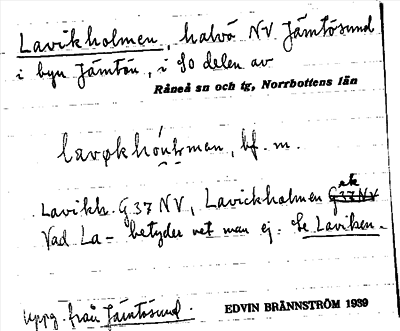 Lavikholmen, halvö NV Jämtösund
i byn Jämtön, i SO delen av
Råneå sn och tg, Norrbottens län
bf. m.
Lavikh. G 37 NV, Lavickholmen ek
G 37 NV
Vad La- betyder vet man ej. Se Laviken.
Uppg. från Jämtösund.
EDVIN BRÄNNSTRÖM 1939